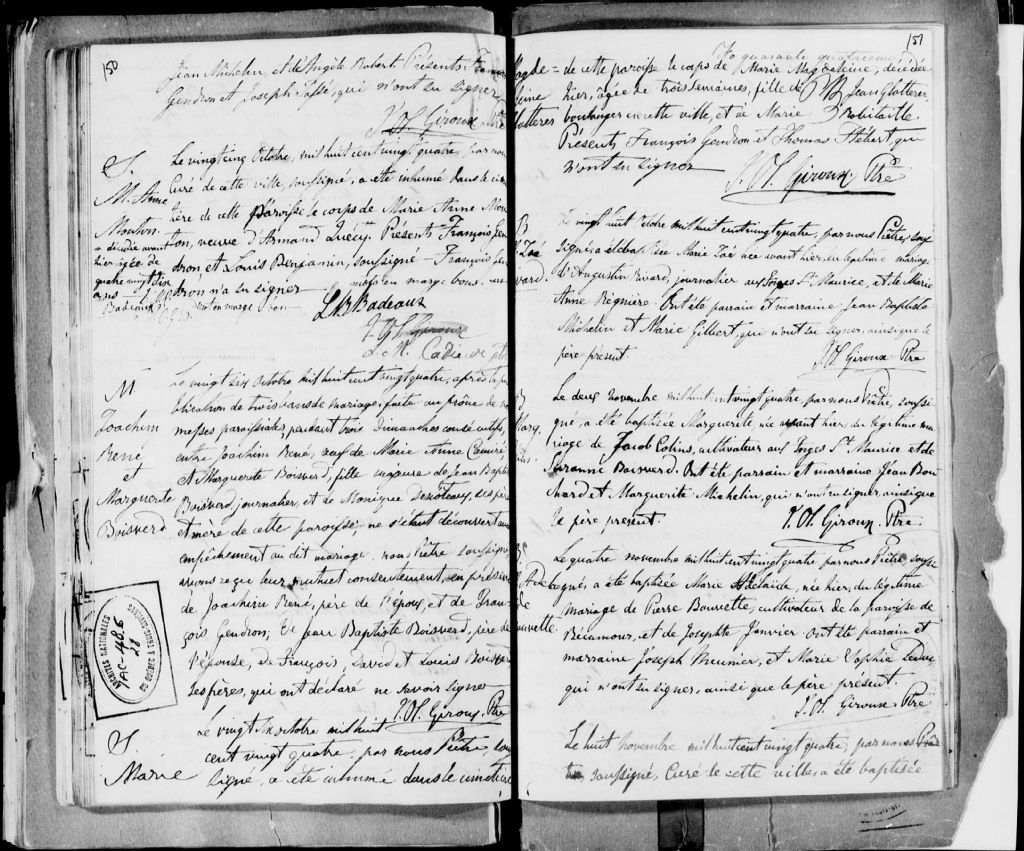 150
Jean Michelin, et d'Angèle Robert. Présents
Gendron et Joseph qui n'ont su signer
Giroux Ptre
S.
M. Anne
Mouton
décédée avant
hier, agée de
quatre vingt dix
ans
Badeaux
Le vingt cinq Octobre, mil huit cent vingt quatre, par nous
Curé de cette ville, soussigné, a été inhumé dans le cime
tière de cette Paroisse le corps de Marie Anne Mou
ton, veuve d'Armand Présents François Gen
dron et Louis Benjamin, soussigné François Gen
dron n'a su signer
mots en marge bons
mot en marge
L.B. Badeaux
Giroux
L. M. Cadieux ptre
M
Joachim
René
et
Marguerite
Boisverd
Le vingt six Octobre mil huit cent vingt quatre, après la pu
blication de trois bans de mariage, faite au prône de nos
messes paroissiales, pendant trois dimanches consécutifs,
entre Joachim René, veuf de Marie Anne
et Marguerite Boisverd, fille majeure de Jean Baptiste
Boisverd journalier, et de Monique Descôteaux, ses père
et mère de cette paroisse, ne s'étant découvert aucun
empêchement au dit mariage, nous Prêtre soussigné
avons reçu leur mutuel consentement, en présence
de Joachim René, père de l'époux, et de Fran-
çois Gendron; de Jean Baptiste Boisverd, père de
l'épouse, de François, David et Louis Boisverd
ses frères, qui ont déclaré ne savoir signer
Giroux, Ptre
S.
Marie
Le vingt six octobre mil huit
cent vingt quatre, par nous Prêtre, sous
signé, a été inhumé dans le cimetière
ARCHIVES NATIONALES
DU QUEBEC A TROIS-RIVIERES
AC-486
28
151
Magde =
leine
Glatteres
quarante quatrième
de cette paroisse le corps de Marie Magdeleine, décédée
hier, agée de trois semaines, fille de Jean Glatterer,
boulanger en cette ville, et de Marie Robitaille
Présents François Gendron et Thomas Hébert, qui
n'ont su signer
Giroux, Ptre
B
Zoé
Rivard
Le vingt huit octobre mil huit cent vingt quatre, par nous Prêtre, sous
signé, a été baptisée Marie Zoé née avant hier, du légitime mariage
d'Augustin Rivard, journalier aux Forges St Maurice, et de Marie
Anne Ont été parrain et marraine Jean Baptiste
Michelin et Marie Gilbert, qui n'ont su signer, ainsi que le
père présent.
Giroux Ptre
B
Marg.
Le deux novembre mil huit cent vingt quatre, par nous Prêtre, soussi
gné, a été baptisée Marguerite née avant hier, du légitime ma
riage de Jacob Colins, cultivateur aux Forges St Maurice et de
Suzanne Boisverd. Ont été parrain et marraine Jean Bou
chard et Marguerite Michelin, qui n'ont su signer, ainsi que
le père présent.
Giroux, Ptre
Le quatre novembre mil huit cent vingt quatre par nous Prêtre, sous
signé, a été baptisée Marie Adelaïde, née hier, du légitime
mariage de Pierre Bouvette, cultivateur de la paroisse de
Bécancour, et de Josephte Janvier Ont été parrain et
marraine Joseph Meunier, et Marie Sophie
qui n'ont su signer, ainsi que le père présent.
Giroux Ptre
Le huit novembre mil huit cent vingt quatre, par nous
soussigné, Curé de cette ville, a été baptisée